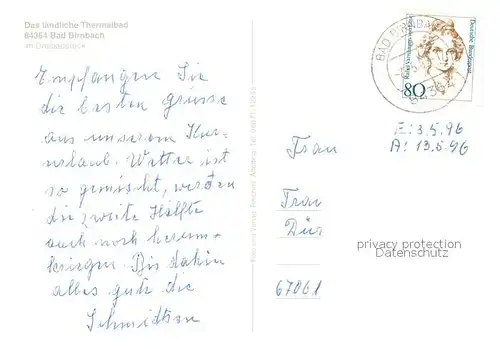 Das ländliche Thermalbad
84364 Bad Birnbach
im Dreibädereck
Empfangen Sie
die besten Grüsse
aus unserem Kur-
urlaub. Wetter ist
so gemischt, werden
die zweite Hälfte
auch noch herum-
kriegen. Bis dahin
alles gute die
Schmidtsen
BAD BIRNBA
Deutsche Bundespost
80
E: 3.5.96
A: 13.5.96
Frau
Frau
Dür
67061
privacy protection
Datenschutz